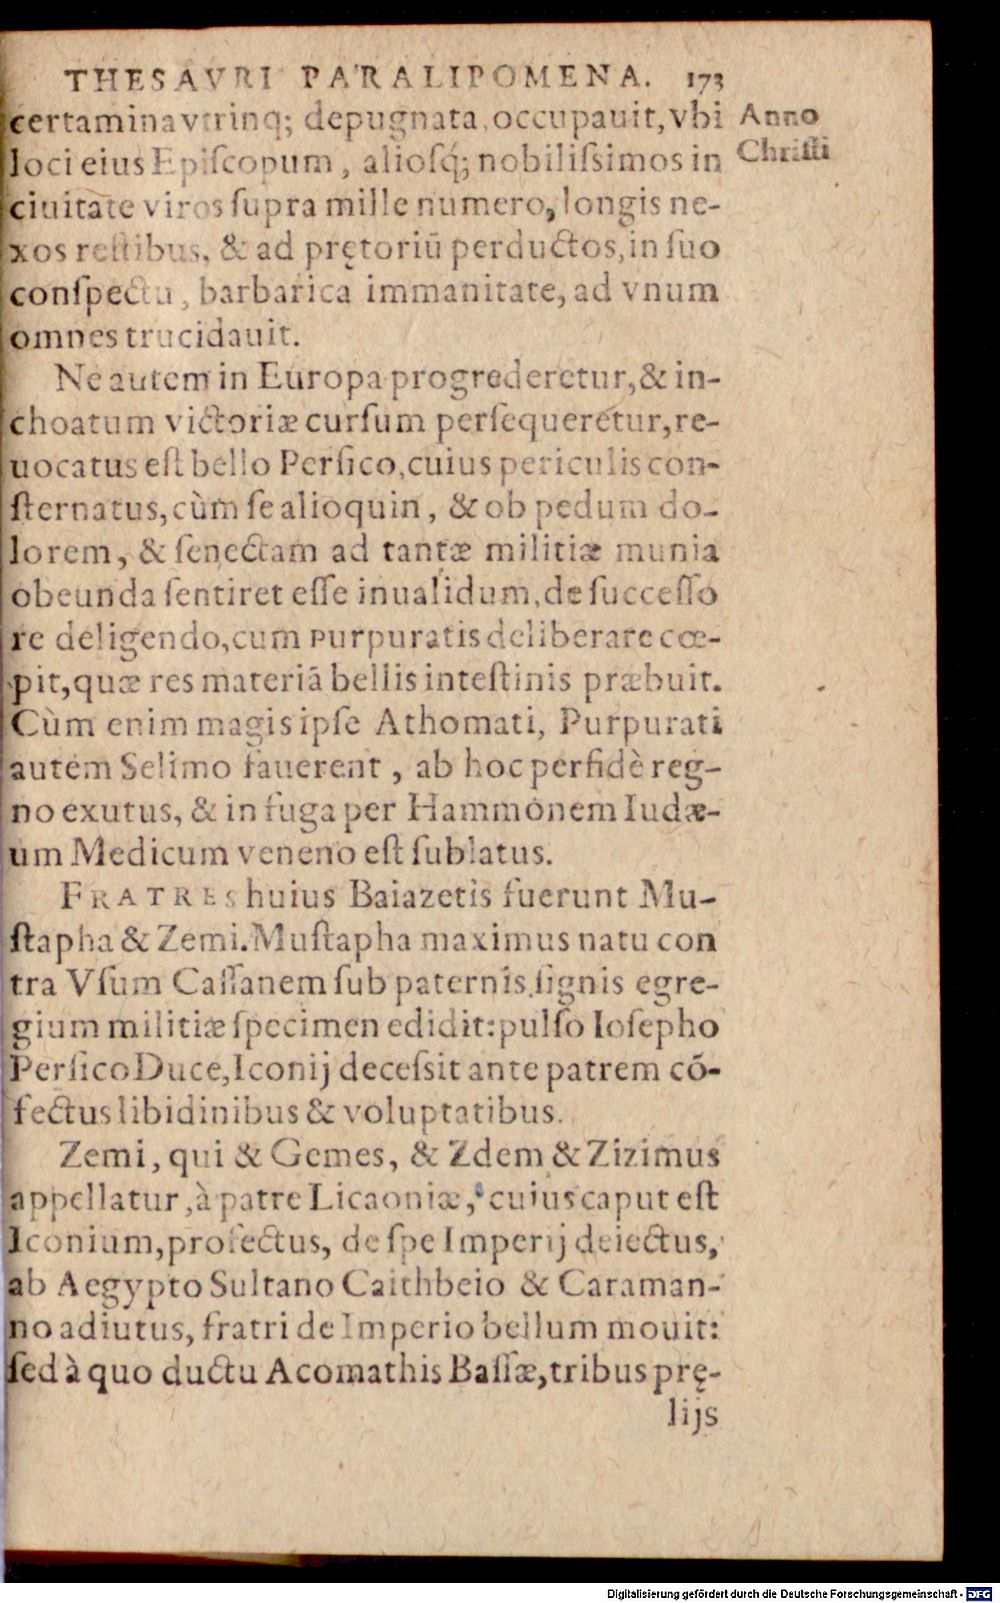 THESAVRI PARALIPOMENA. 173
Anno
Christi
certamina vtrinq; depugnata, occupauit, vbi
loci eius Epiſcopum, aliosq́; nobiliſsimos in
ciuitate viros ſupra mille numero, longis ne-
xos reſtibus, & ad prętoriū perductos, in ſuo
conſpectu, barbarica immanitate, ad vnum
omnes trucidauit.
Ne autem in Europa progrederetur, & in-
choatum victoriæ curſum perſequeretur, re-
uocatus eſt bello Perſico, cuius periculis con-
ſternatus, cùm ſe alioquin, & ob pedum do-
lorem, & ſenectam ad tantæ militiæ munia
obeunda ſentiret eſſe inualidum, de ſucceſſo
re deligendo, cum purpuratis deliberare cœ-
pit, quæ res materiā bellis inteſtinis præbuit.
Cùm enim magis ipſe Athomati, Purpurati
autem Selimo fauerent, ab hoc perfidè reg-
no exutus, & in fuga per Hammonem Iudæ-
um Medicum veneno eſt ſublatus.
FRATRES huius Baiazetis fuerunt Mu-
ſtapha & Zemi. Muſtapha maximus natu con
tra Vſum Caſſanem ſub paternis ſignis egre-
gium militiæ ſpecimen edidit: pulſo Ioſepho
Perſico Duce, Iconij deceſsit ante patrem cō-
fectus libidinibus & voluptatibus.
Zemi, qui & Gemes, & Zdem & Zizimus
appellatur, à patre Licaoniæ, cuius caput eſt
Iconium, profectus, de ſpe Imperij deiectus,
ab Aegypto Sultano Caithbeio & Caraman-
no adiutus, fratri de Imperio bellum mouit:
ſed à quo ductu Acomathis Baſſæ, tribus prę-
lijs
Digitalisierung gefördert durch die Deutsche Forschungsgemeinschaft - DFG